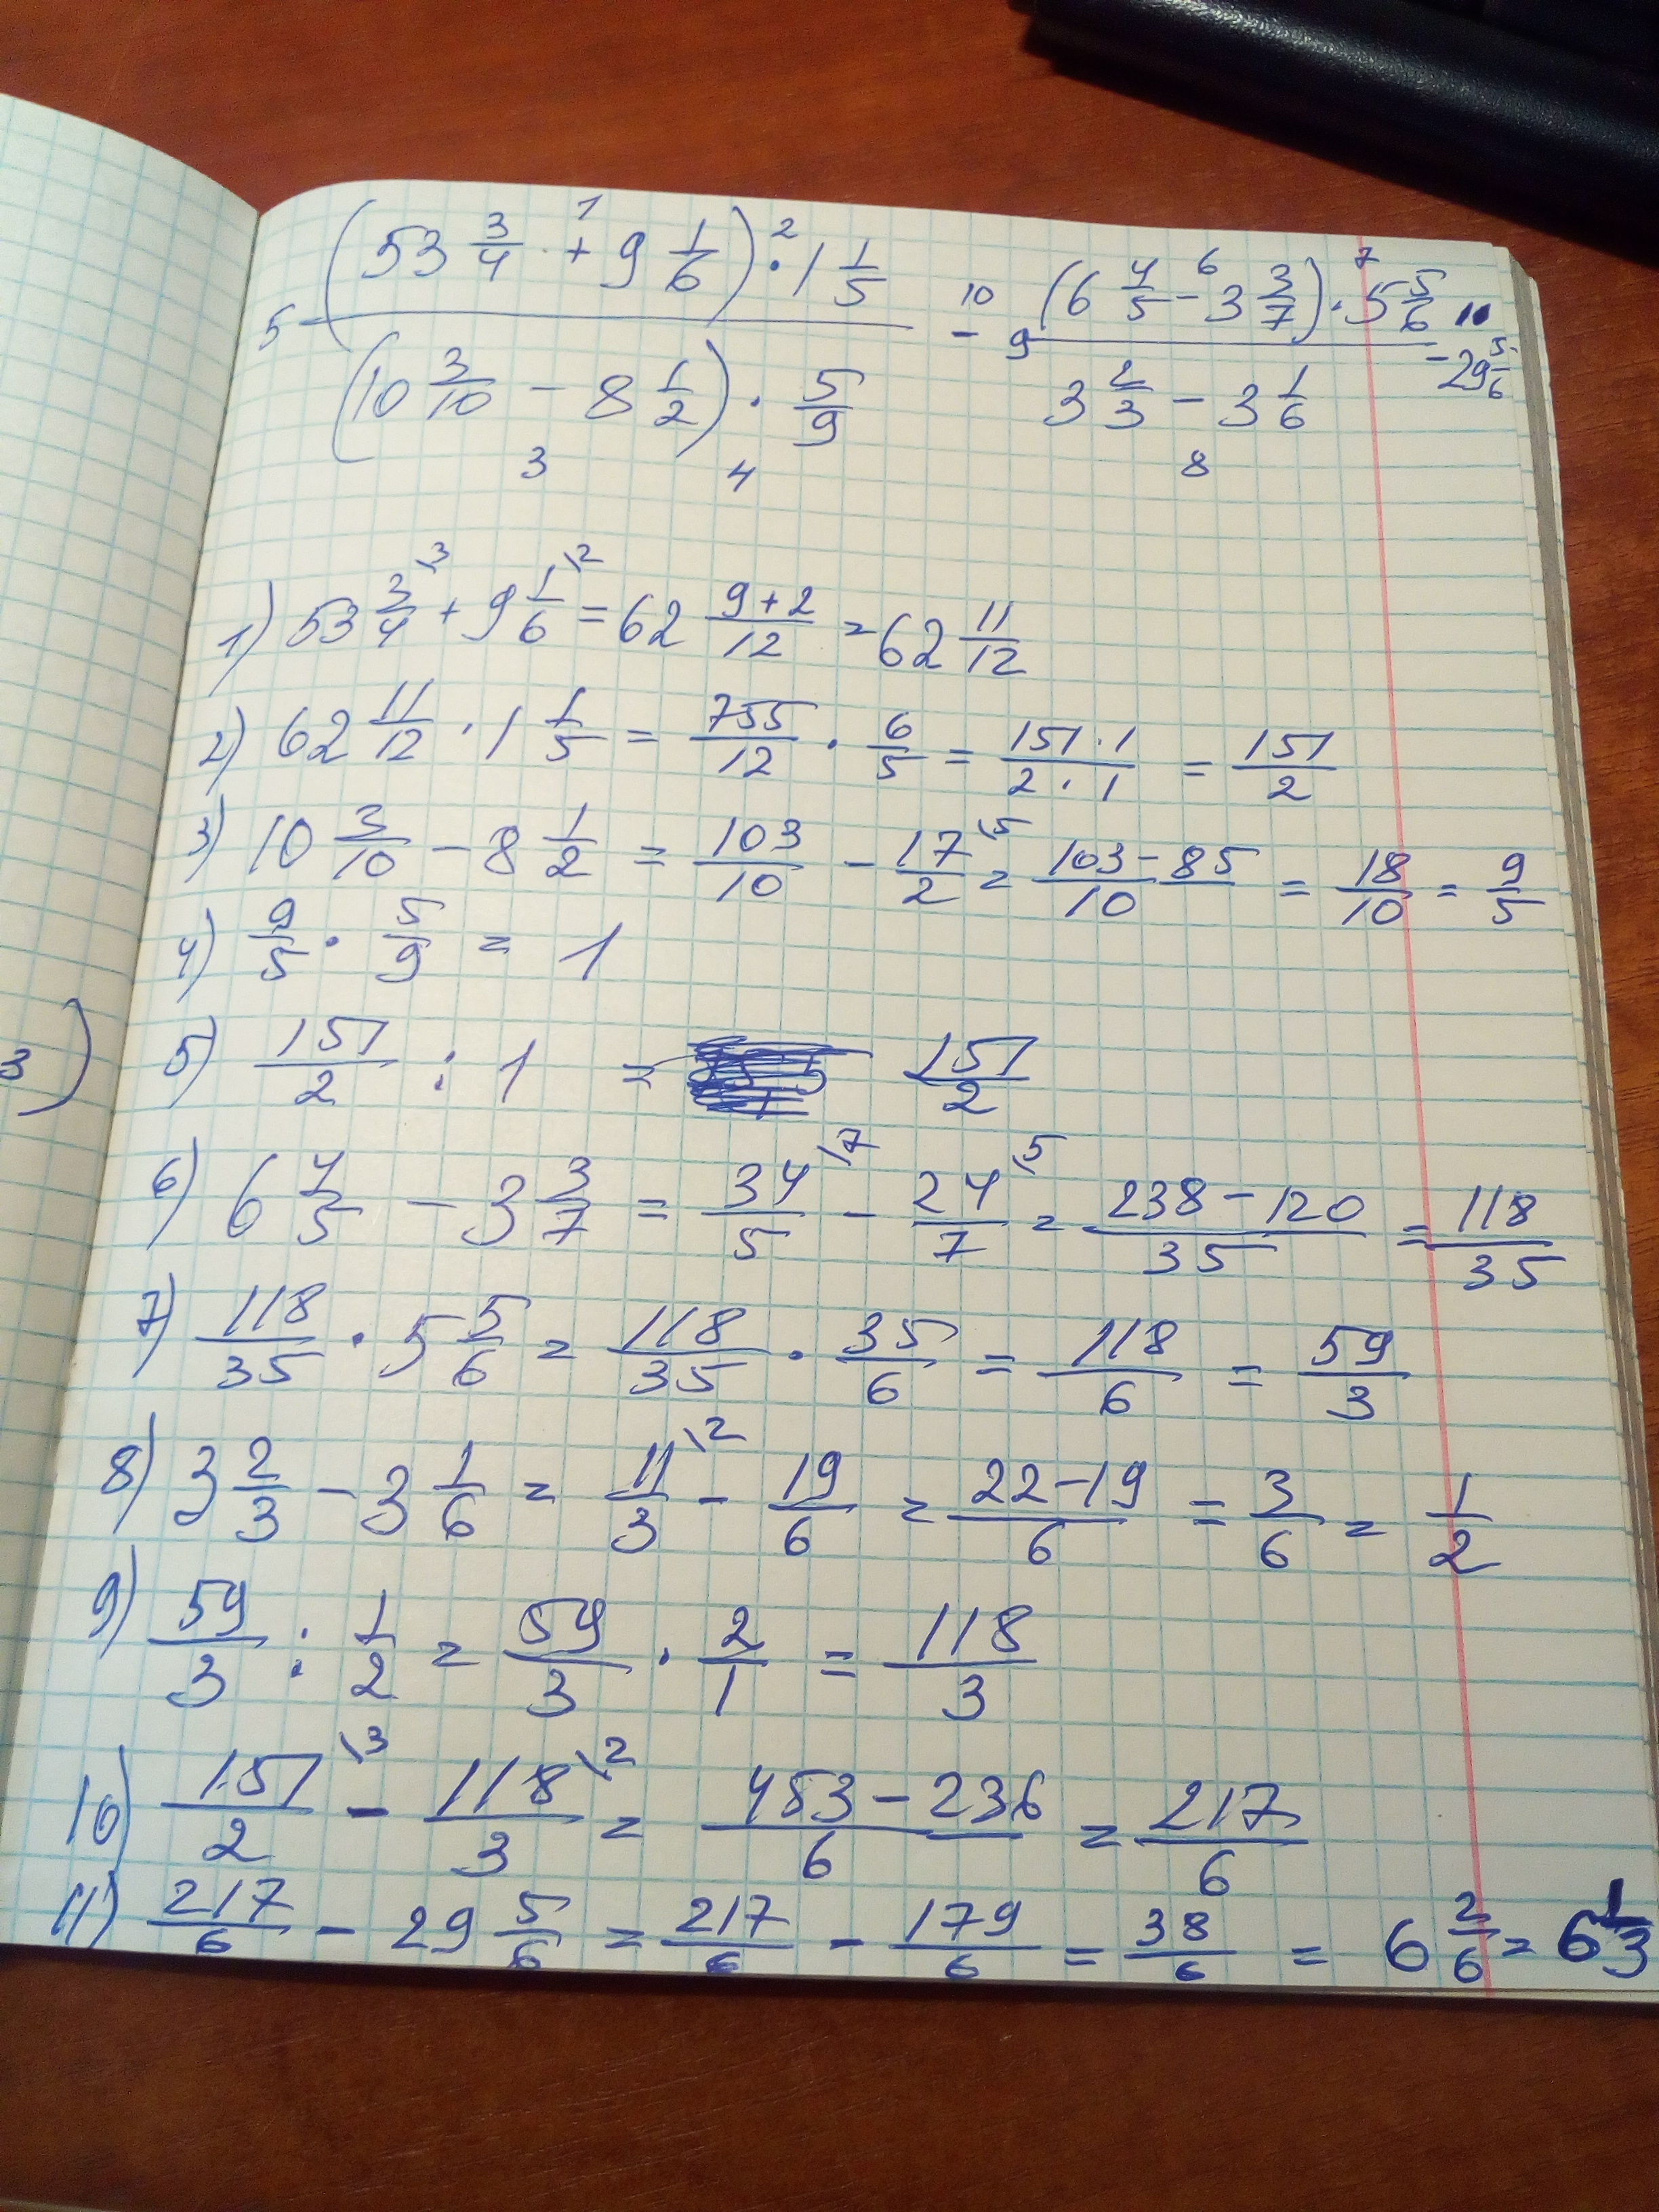 5 (53 3/4 + 9 1/6) · 1 1/5 / (10 3/10 - 8 1/2) · 5/9 - (6 4/5 - 3 3/7) · 5 5/6 / 3 2/3 - 3 1/6 - 29 5/6
1 2 10 6 7 9 11
3 4 8
1) 53 3/4 \3 + 9 1/6 \2 = 62 9+2/12 = 62 11/12
2) 62 11/12 · 1 1/5 = 755/12 · 6/5 = 151·1/2·1 = 151/2
3) 10 3/10 - 8 1/2 = 103/10 - 17/2 \5 = 103-85/10 = 18/10 = 9/5
4) 9/5 · 5/9 = 1
3) 5) 151/2 : 1 = 151/2
6) 6 4/5 - 3 3/7 = 34/5 \7 - 24/7 \5 = 238-120/35 = 118/35
7) 118/35 · 5 5/6 = 118/35 · 35/6 = 118/6 = 59/3
8) 3 2/3 - 3 1/6 = 11/3 \2 - 19/6 = 22-19/6 = 3/6 = 1/2
9) 59/3 : 1/2 = 59/3 · 2/1 = 118/3
10) 151/2 \3 - 118/3 \2 = 453-236/6 = 217/6
11) 217/6 - 29 5/6 = 217/6 - 179/6 = 38/6 = 6 2/6 = 6 1/3